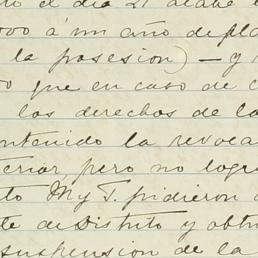 to el dia 21
000 á un año de pla
la posesion) — y
que en caso de c
los derechos de la
ntenido la revoca
terior, pero no logr
to M y T. pidieron
te de Distrito y obtu
suspension de la